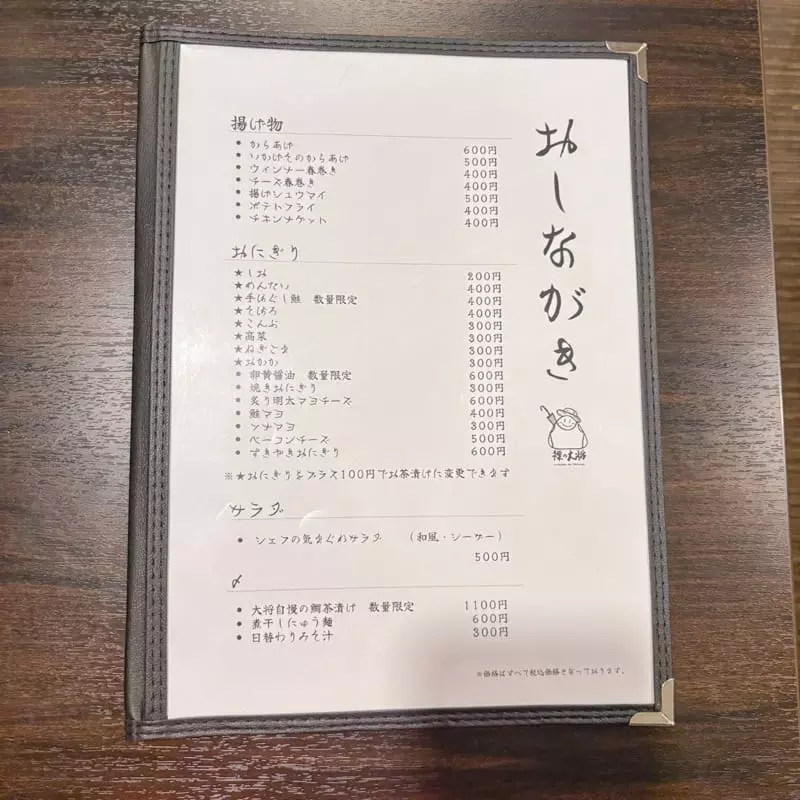 おしながき
揚げ物
• からあげ 600円
• いかげそのからあげ 500円
• ウィンナー春巻き 400円
• チーズ春巻き 400円
• 揚げシュウマイ 500円
• ポテトフライ 400円
• チキンナゲット 400円
おにぎり
★しお 200円
★めんたい 400円
★手ほぐし鮭 数量限定 400円
★そぼろ 400円
★こんぶ 300円
★高菜 300円
★ねぎごま 300円
★おかか 300円
• 卵黄醤油 数量限定 600円
• 焼きおにぎり 300円
• 炙り明太マヨチーズ 600円
• 鮭マヨ 400円
• ツナマヨ 300円
• ベーコンチーズ 500円
• すきやきおにぎり 600円
※★おにぎりをプラス100円でお茶漬けに変更できます
サラダ
• シェフの気まぐれサラダ （和風・シーザー）
500円
〆
• 大将自慢の鯛茶漬け 数量限定 1100円
• 煮干しにゅう麺 600円
• 日替わりみそ汁 300円
※価格はすべて税込価格となっております。
裸の大将